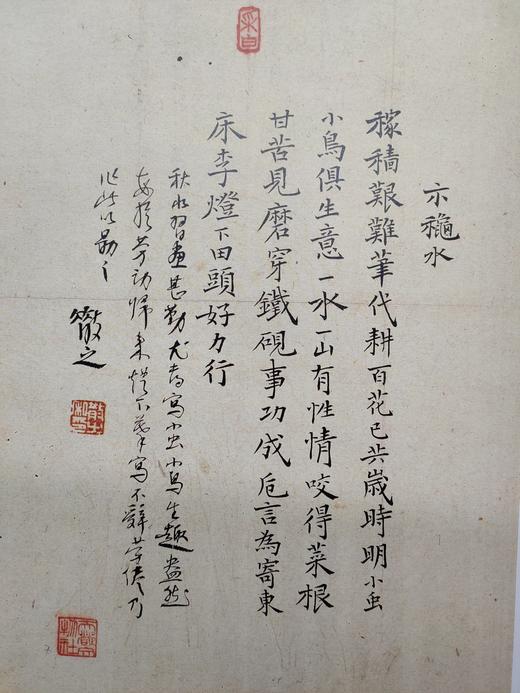 示龝水
稼穡艱難筆代耕百花已共歲時明小虫
小鳥俱生意一水一山有性情咬得菜根
甘苦見磨穿鐵硯事功成卮言為寄東
床李燈下田頭好力行
秋水習畫甚勤尤喜寫小虫小鳥生趣盎然
每於勞動歸來燈下寫不辭勞倦乃
作此以勗之
徹之